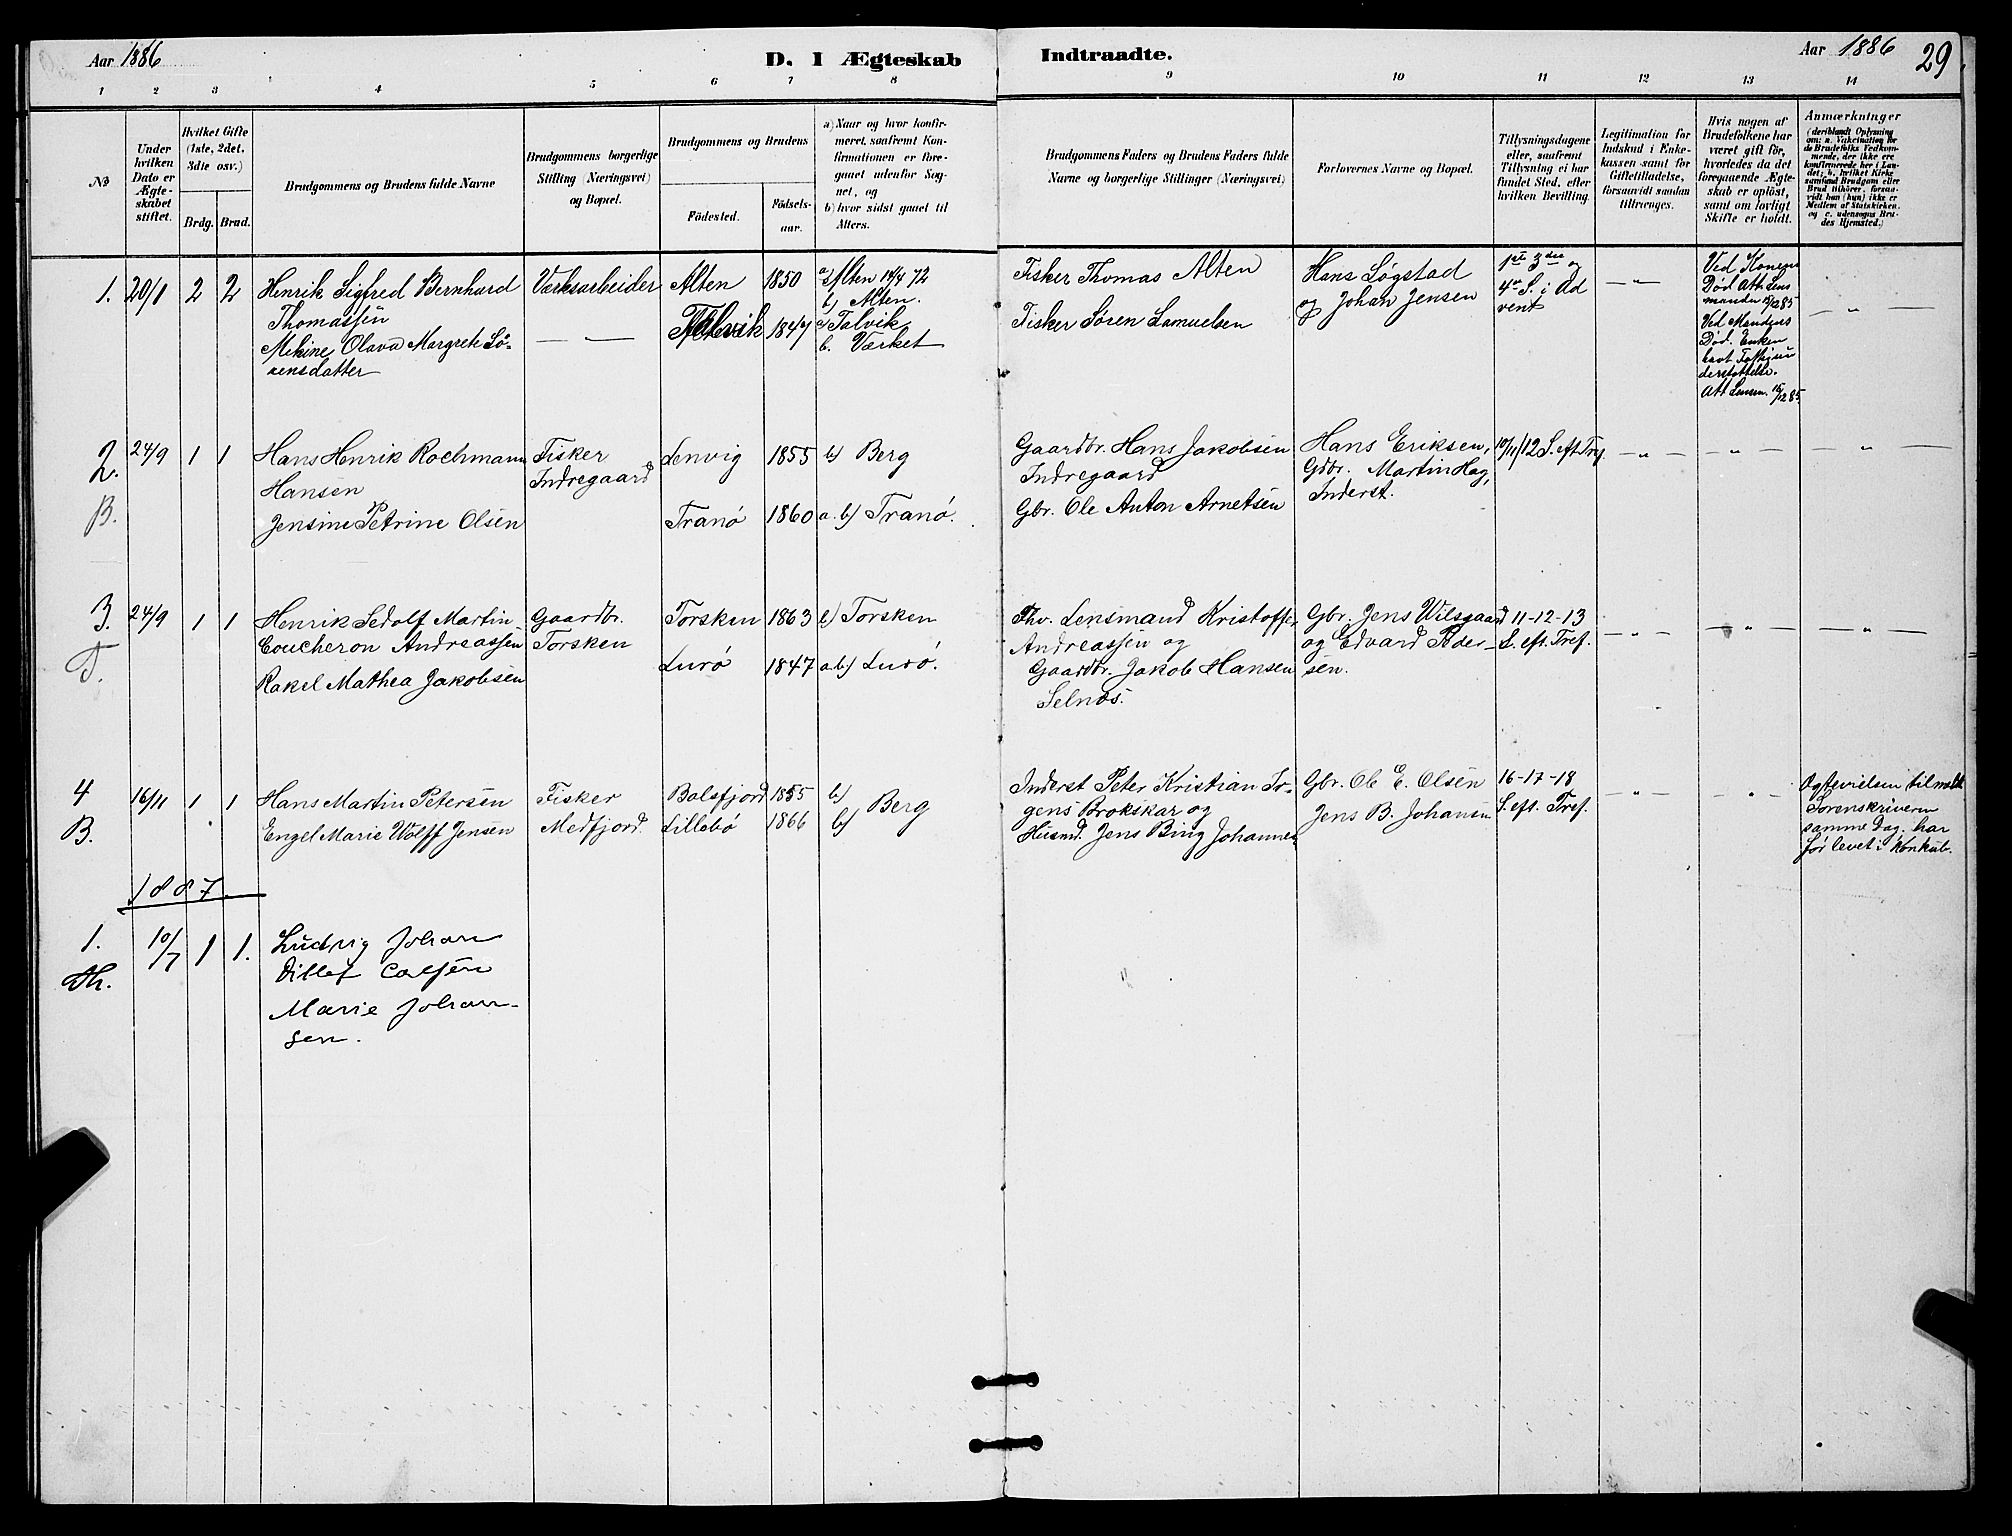 Aar 1886
D. I Ægteskab Indtraadte.
Aar 1886
29
1 2 3 4 5 6 7 8 9 10 11 12 13 14
No
Under hvilken Dato er Ægteskabet stiftet.
Hvilket Gifte (1ste, 2det, 3die osv.)
Brdg. Brud.
Brudgommens og Brudens fulde Navne
Brudgommens borgerlige Stilling (Næringsvei) og Bopæl.
Brudgommens og Brudens
Fødested.
Fødselsaar.
a) Naar og hvor konfirmeret, saafremt Konfirmationen er foregaaet udenfor Sognet, og
b) hvor sidst gaaet til Alters.
Brudgommens Faders og Brudens Faders fulde Navne og borgerlige Stillinger (Næringsvei)
Forlovernes Navne og Bopæl.
Tillysningsdagene eller, saafremt Tillysning ei har fundet Sted, efter hvilken Bevilling.
Legitimation for Indskud i Enkekassen samt for Giftetilladelse, forsaavidt saadan tiltrænges.
Hvis nogen af Brudefolkene har været gift før, hvorledes da det foregaaende Ægteskab er opløst, samt om lovligt Skifte er holdt.
Anmærkninger
(deriblandt Oplysning om: a. Vakcination for de Brudefolks Vedkommende, der ikke ere konfirmerede her i Landet; b. hvilket Kirkesamfund Brudgom eller Brud tilhører, forsaavidt han (hun) ikke er Medlem af Statskirken, og c. udensogns Brudes Hjemsted.)
1. 20/1 2 2
Henrik Sigfred Bernhard
Thomassen
Olava Margrete Sö-
rensdatter
Værksarbeider
— " —
Alten 1850
Talvik 1847
a) Alten 14/4 72
b) Alten.
a) Talvik
b. Værket
Fisker Thomas Alten
Fisker Sören Samuelsen
Hans Løgstad
og Johan Jensen
1ste 3die og
4de S. i Ad
vent
— " —
Ved Konens
Död. Att Lens
manden 15/12 85
Ved Mandens
Död. Enken
havt Fattigun
derstöttelse.
Att Lensm. 15/12 85
— " —
2. 24/9 1 1
B.
Hans Henrik Rochmann
Hansen
Jensine Petrine Olsen
Fisker
Indregaard
Lenvig 1855 b) Berg
Tranö 1860 a. b) Tranö.
Gaardbr. Hans Jakobsen
Indregaard
Gbr. Ole Anton Arnetsen
Hans Eriksen,
Gdbr. Martin Hag,
Inderst.
10/11/12 S. eft. Tref
— " — — " — — " —
3. 24/9 1 1
T.
Henrik Sedolf Martin
Coucheron Andreassen
Rakel Mathea Jakobsen
Gaardbr.
Torsken
Torsken 1863 b) Torsken
Lurö 1847 a. b.) Lurö.
Fhv. Lensmand Kristoffer
Andreassen og
Gaardbr. Jakob Hansen
Selnæs.
Gbr. Jens Wilsgaard
og Edvard Peder-
sen.
11-12-13
S. eft. Tref.
— " — — " — — " —
4 16/11 1 1
B.
Hans Martin Petersen
Engel Marie Wolff Jensen
Fisker
Medfjord.
Balsfjord 1855 b)
Lillebö 1866 b) Berg
Inderst Peter Kristian Jö-
gens Brokskar og
Husmd. Jens Bing Johannes
Gbr. Ole E. Olsen
Jens B. Johansen
16-17-18
S. eft. Tref.
— " — — " —
Ogtevielsen tilmeldt
Sorenskriveren
samme Dag. har
för levet i Konkub.
1887
1. 10/7 1 1.
Th.
Ludvig Johan
Ditlef Carlsen
Marie Johan-
sen.